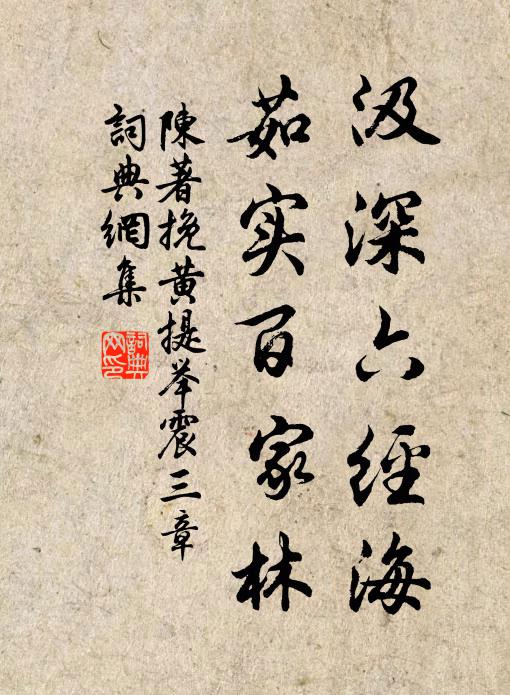 汲深六經海
茹实百家林
陳著挽黄提举震三章
詞典網集
詞典网印